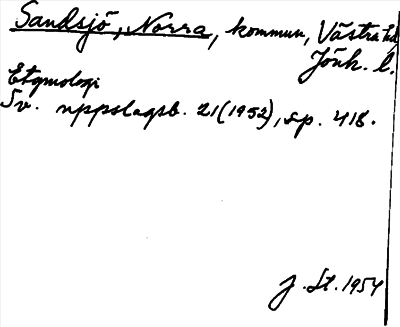 Sandsjö, Norra, kommun, Västra hd,
Jönk. l.
Etymologi
Sv. uppslagsb. 21(1952), sp. 418.
J. St. 1954